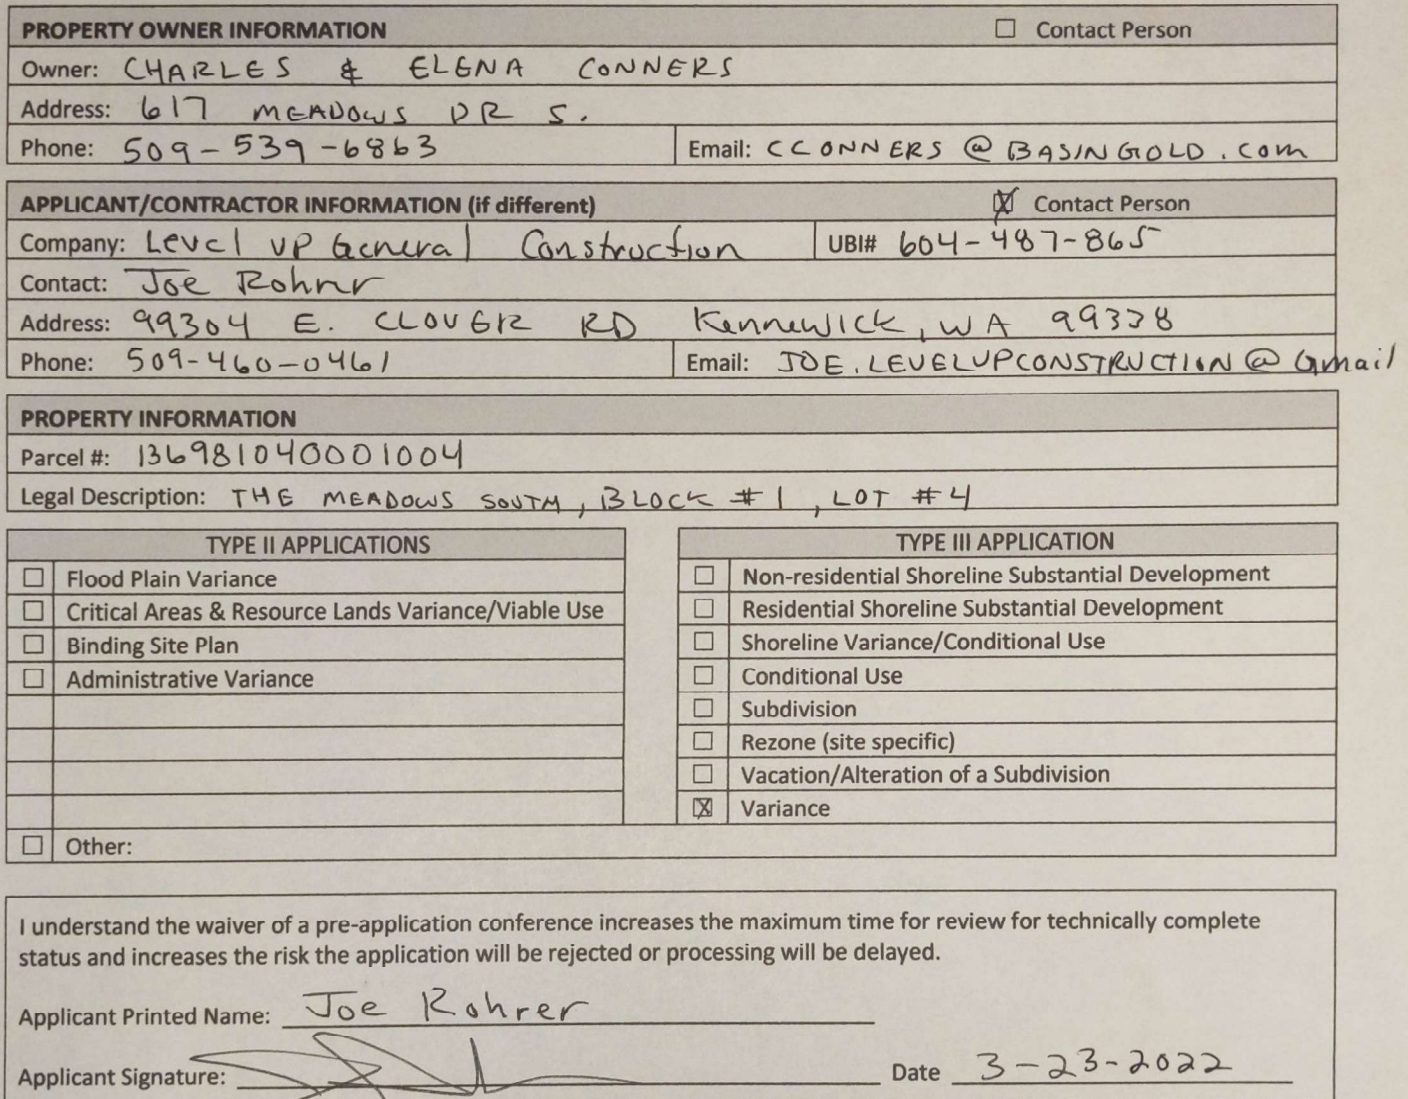 PROPERTY OWNER INFORMATION ☐ Contact Person
Owner: CHARLES & ELENA CONNERS
Address: 617 MEADOWS DR S.
Phone: 509-539-6863 Email: CCONNERS @ BASINGOLD.com
APPLICANT/CONTRACTOR INFORMATION (if different) ☒ Contact Person
Company: Level UP General Construction UBI# 604-487-865
Contact: Joe Rohrer
Address: 99304 E. CLOVER RD Kennewick, WA 99338
Phone: 509-460-0461 Email: JOE.LEVELUPCONSTRUCTION @ Gmail
PROPERTY INFORMATION
Parcel #: 136981040001004
Legal Description: THE MEADOWS SOUTH, BLOCK #1, LOT #4
TYPE II APPLICATIONS TYPE III APPLICATION
☐ Flood Plain Variance ☐ Non-residential Shoreline Substantial Development
☐ Critical Areas & Resource Lands Variance/Viable Use ☐ Residential Shoreline Substantial Development
☐ Binding Site Plan ☐ Shoreline Variance/Conditional Use
☐ Administrative Variance ☐ Conditional Use
☐ Subdivision
☐ Rezone (site specific)
☐ Vacation/Alteration of a Subdivision
☒ Variance
☐ Other:
I understand the waiver of a pre-application conference increases the maximum time for review for technically complete
status and increases the risk the application will be rejected or processing will be delayed.
Applicant Printed Name: Joe Rohrer
Applicant Signature: Date 3-23-2022